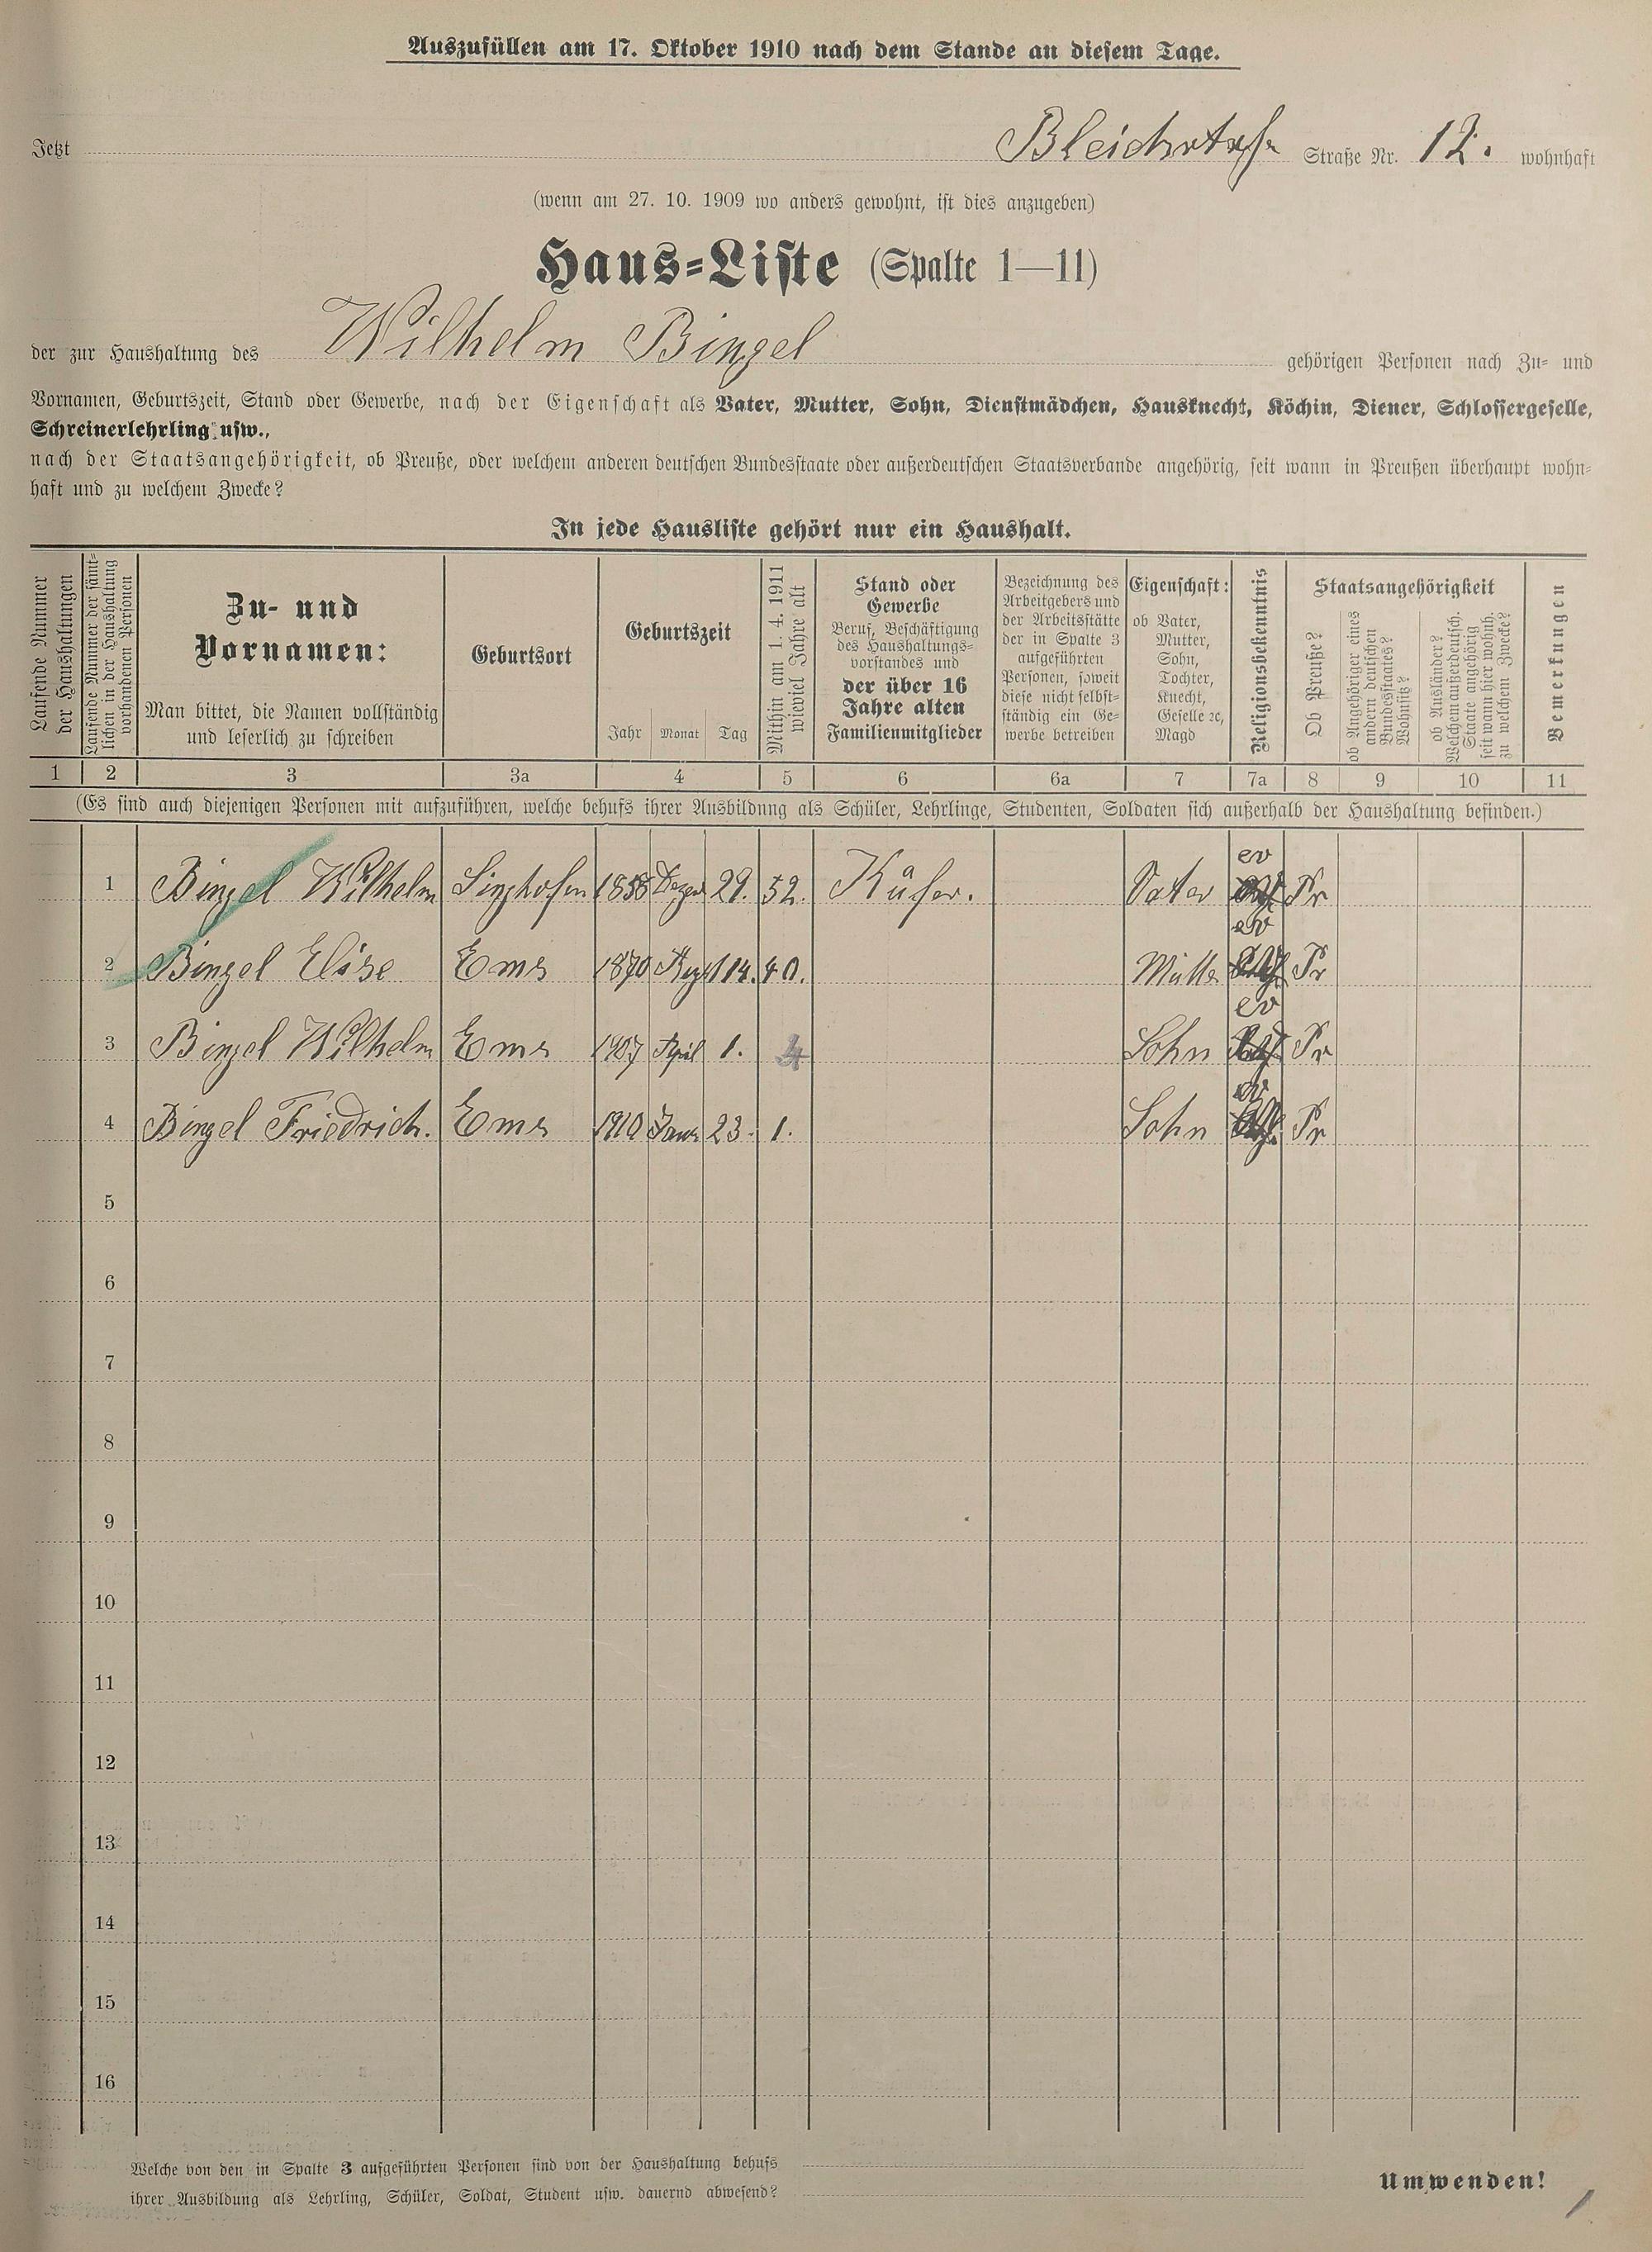 Auszufüllen am 17. Oktober 1910 nach dem Stande an diesem Tage.
Jetzt Bleichstraße Straße Nr. 12. wohnhaft
(wenn am 27. 10. 1909 wo anders gewohnt, ist dies anzugeben)
Haus-Liste (Spalte 1—11)
der zur Haushaltung des Wilhelm Bingel gehörigen Personen nach Zu- und
Vornamen, Geburtszeit, Stand oder Gewerbe, nach der Eigenschaft als Vater, Mutter, Sohn, Dienstmädchen, Hausknecht, Köchin, Diener, Schlossergeselle,
Schreinerlehrling usw.,
nach der Staatsangehörigkeit, ob Preuße, oder welchem anderen deutschen Bundesstaate oder außerdeutschen Staatsverbande angehörig, seit wann in Preußen überhaupt wohn-
haft und zu welchem Zwecke?
In jede Hausliste gehört nur ein Haushalt.
Laufende Nummer
der Haushaltungen
Laufende Nummer der sämt-
lichen in der Haushaltung
vorhandenen Personen
Zu- und
Vornamen:
Man bittet, die Namen vollständig
und leserlich zu schreiben
Geburtsort
Geburtszeit
Jahr Monat Tag
Mithin am 1. 4. 1911
wieviel Jahre alt
Stand oder
Gewerbe
Beruf, Beschäftigung
des Haushaltungs-
vorstandes und
der über 16
Jahre alten
Familienmitglieder
Bezeichnung des
Arbeitgebers und
der Arbeitsstätte
der in Spalte 3
aufgeführten
Personen, soweit
diese nicht selbst-
ständig ein Ge-
werbe betreiben
Eigenschaft:
ob Vater,
Mutter,
Sohn,
Tochter,
Knecht,
Geselle ec,
Magd
Religionsbekenntnis
Staatsangehörigkeit
Ob Preuße?
ob Angehöriger eines
andern deutschen
Bundesstaates?
Wohnsitz?
ob Ausländer?
Welchem außerdeutsch.
Staate angehörig
seit wann hier wohnh.
zu welchem Zwecke?
Bemerkungen
1 2 3 3a 4 5 6 6a 7 7a 8 9 10 11
(Es sind auch diejenigen Personen mit aufzuführen, welche behufs ihrer Ausbildung als Schüler, Lehrlinge, Studenten, Soldaten sich außerhalb der Haushaltung befinden.)
1 Bingel Wilhelm Singhofen 1858 Dezem 29. 52. Küfer. Vater ev Pr
2 Bingel Elise Ems 1870 14. 40. Mutter ev Pr
3 Bingel Wilhelm Ems 1907 April 1. 4 Sohn ev Pr
4 Bingel Friedrich. Ems 1910 Janr 23. 1. Sohn ev Pr
5
6
7
8
9
10
11
12
13
14
15
16
Welche von den in Spalte 3 aufgeführten Personen sind von der Haushaltung behufs
ihrer Ausbildung als Lehrling, Schüler, Soldat, Student usw. dauernd abwesend?
Umwenden!